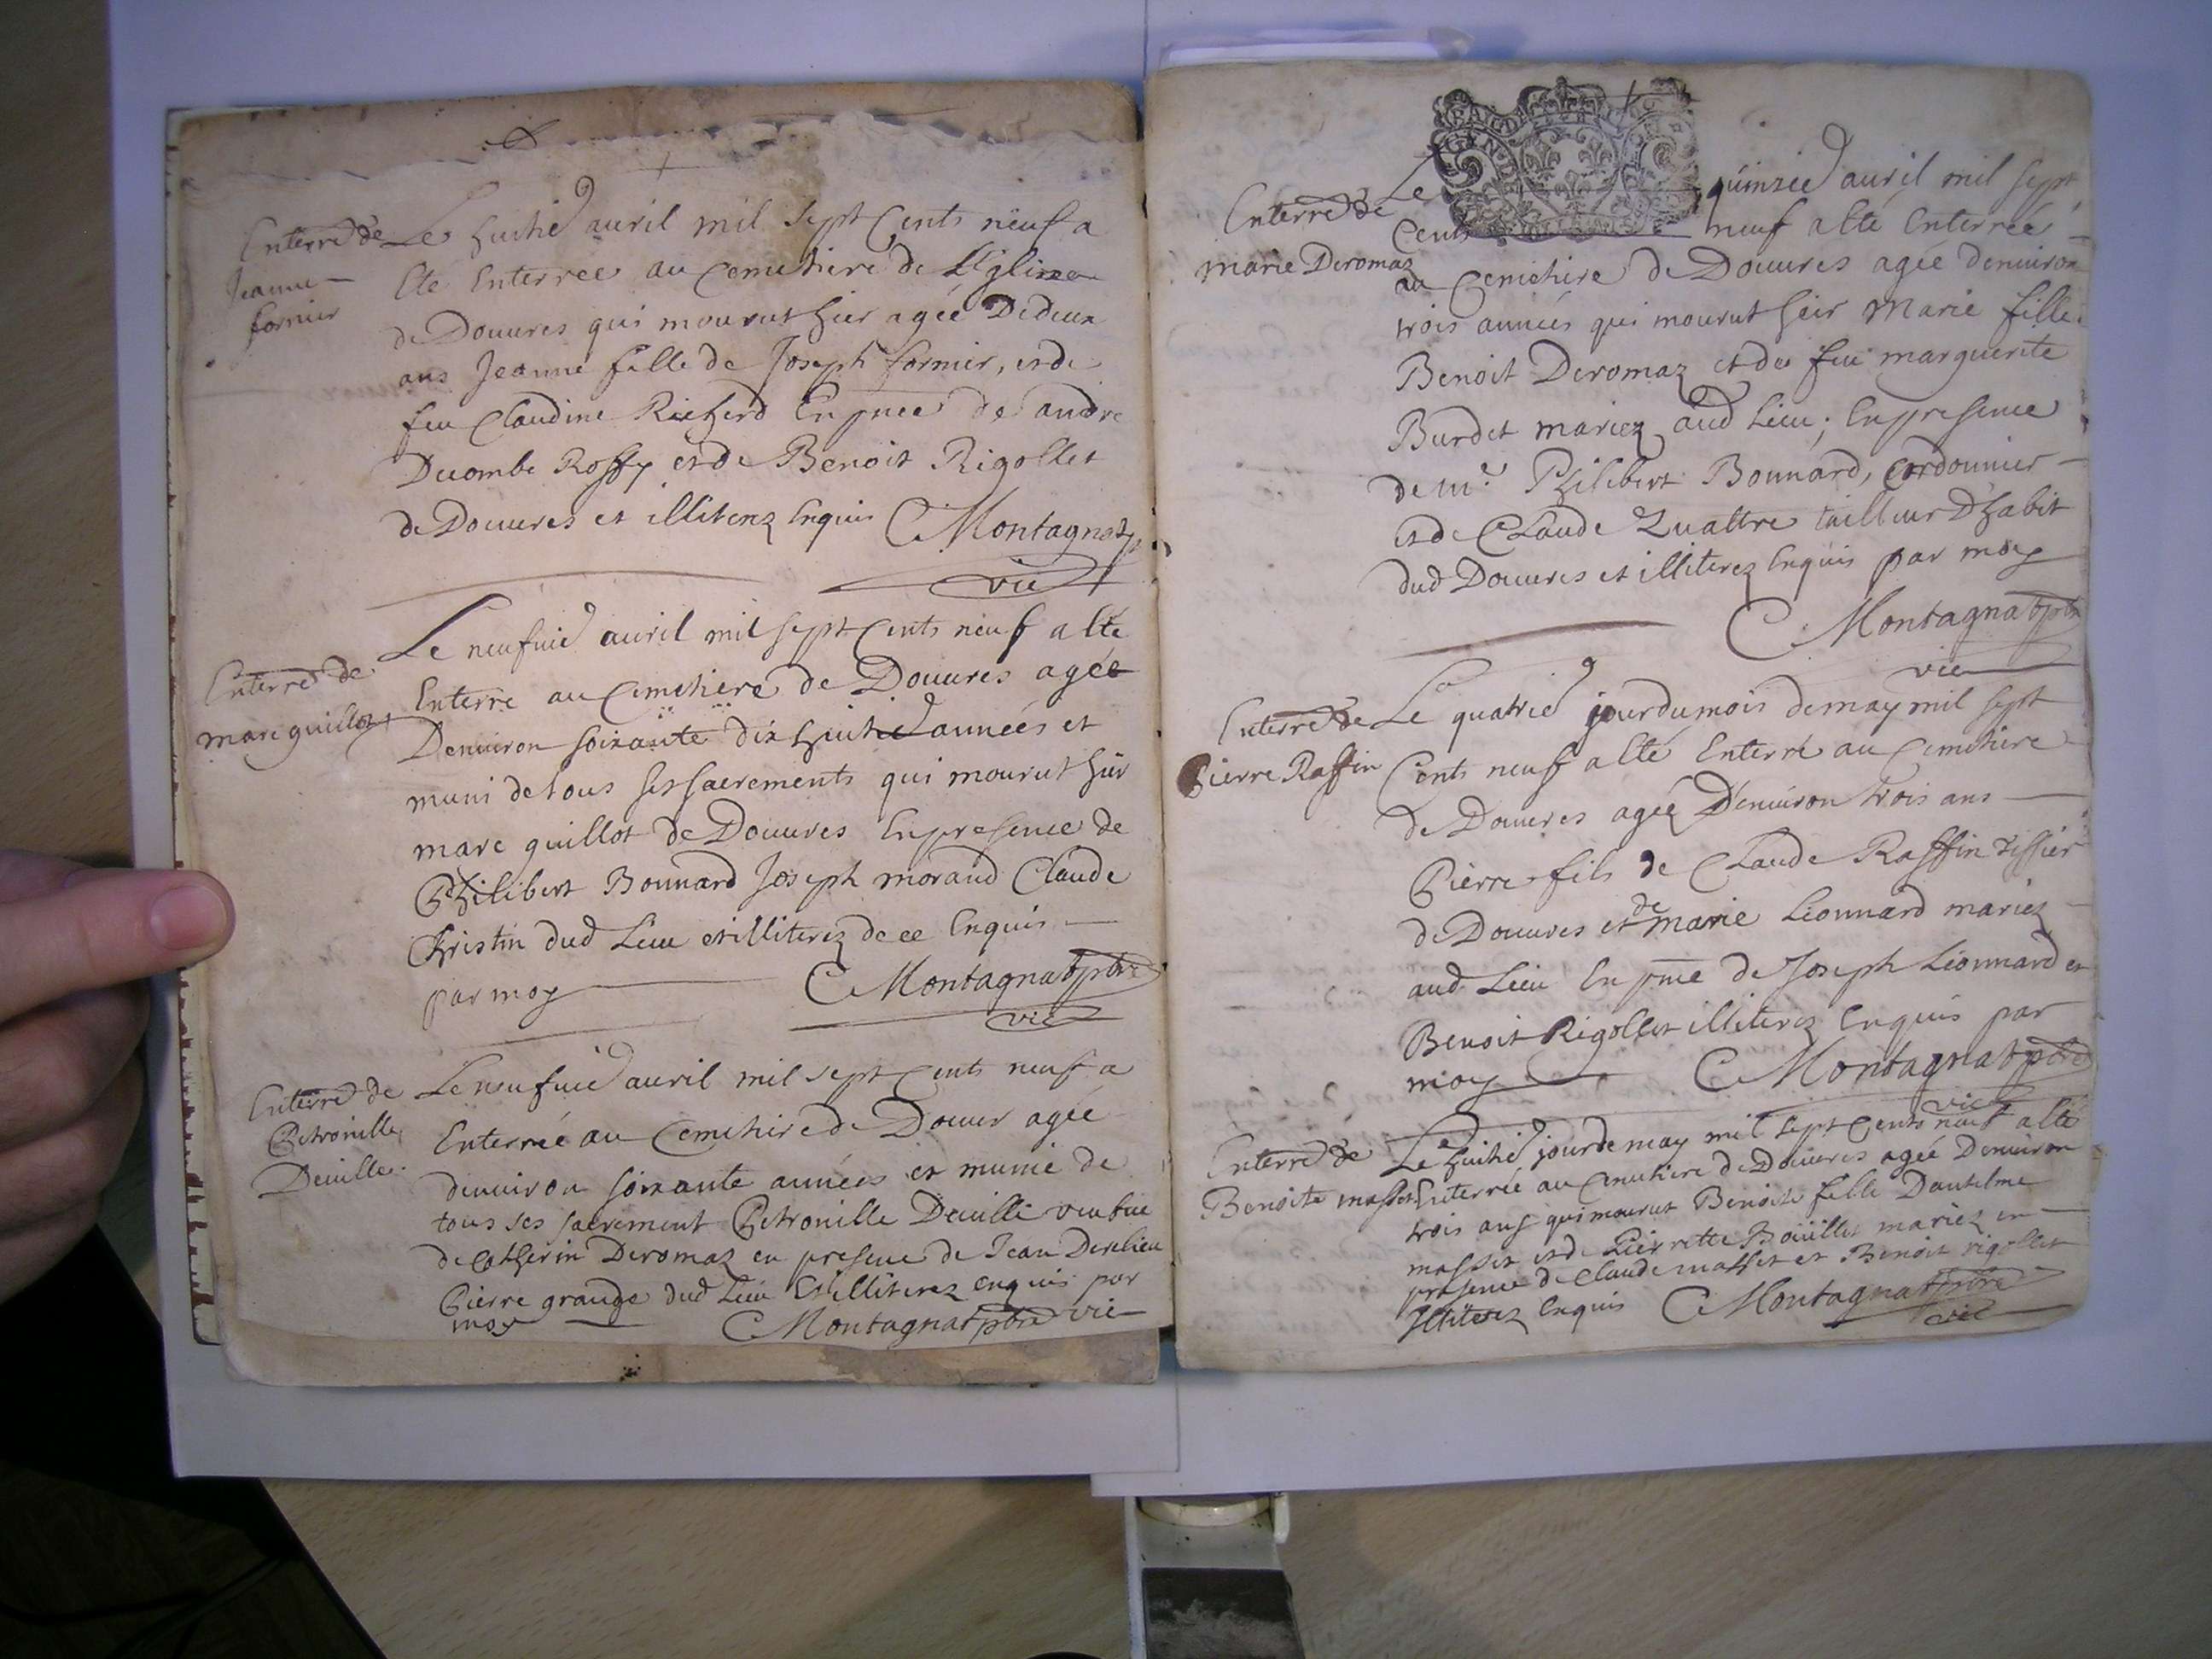 Enterre de
Jeanne
fornier
Le huitie auril mil sept Cents neuf a
Eté Enterree au Cemetiere de L'Eglise
de Douures qui mourut hier agée De deux
ans Jeanne fille de Joseph fornier, et de
feu Claudine Richerd En pnce de andre
Decombe Rossy et de Benoit Rigollet
de Douures et illiterez Enquis C Montagnat
vic
Enterre de
marc guillot
Le neufuie auril mil sept Cents neuf a Eté
Enterre au Cimetiere de Douures agée
Denuiron soixante dix huitie années et
muni de tous ses sacrements qui mourut hier
marc guillot de Douures En presence de
Philibert Bonnard Joseph morand Claude
Christin dud Lieu et illiterez de ce Enquis
par moy C Montagnat pbre
vic
Enterre de
Petronille
Deuille
Le neufuie auril mil sept Cents neuf a
Enterrée au Cemetiere de Douur agée
denuiron soixante années et munie de
tous ses sacrement Petronille Deuille veufue
de Catherin Deromaz en presence de Jean Derelieu
Pierre grange dud Lieu Et illiterez enquis par
moy C Montagnat pbre vic
Enterre de
marie Deromaz
Le quinzie auril mil sept
Cents neuf a Eté Enterreé
au Cemetiere de Douures agée denuiron
trois années qui mourut heir Marie fille
Benoit Deromaz et de feu marguerite
Burdet mariez aud Lieu; En presence
de mr. Philibert Bonnard, Cordonnier
et de Claude Quattre tailleur D'habit
dud Douures et illiterez Enquis par moy
C Montagnat pbre
vic
Enterre de
Pierre Raffin
Le quatrie jour du mois de may mil sept
Cents neuf a Eté Enterré au Cemetiere
de Douures agée D'enuiron trois ans
Pierre fils de Claude Raffin tissier
de Douures et de marie Leonnard mariez
aud Lieu En pnce de Joseph Leonnard et
Benoit Rigollet illiterez Enquis par
moy C Montagnat pbre
vic
Enterre de
Benoite masset
Le huitie jour de may mil sept Cents neuf a Eté
Enterrée au Cemetiere de Douures agée Denuiron
trois ans qui mourut Benoite fille Dantelme
masset et de Pierrette Boüillet mariez en
presence de Claude masset et Benoit rigollet
Illiterez Enquis C Montagnat pbre
vic